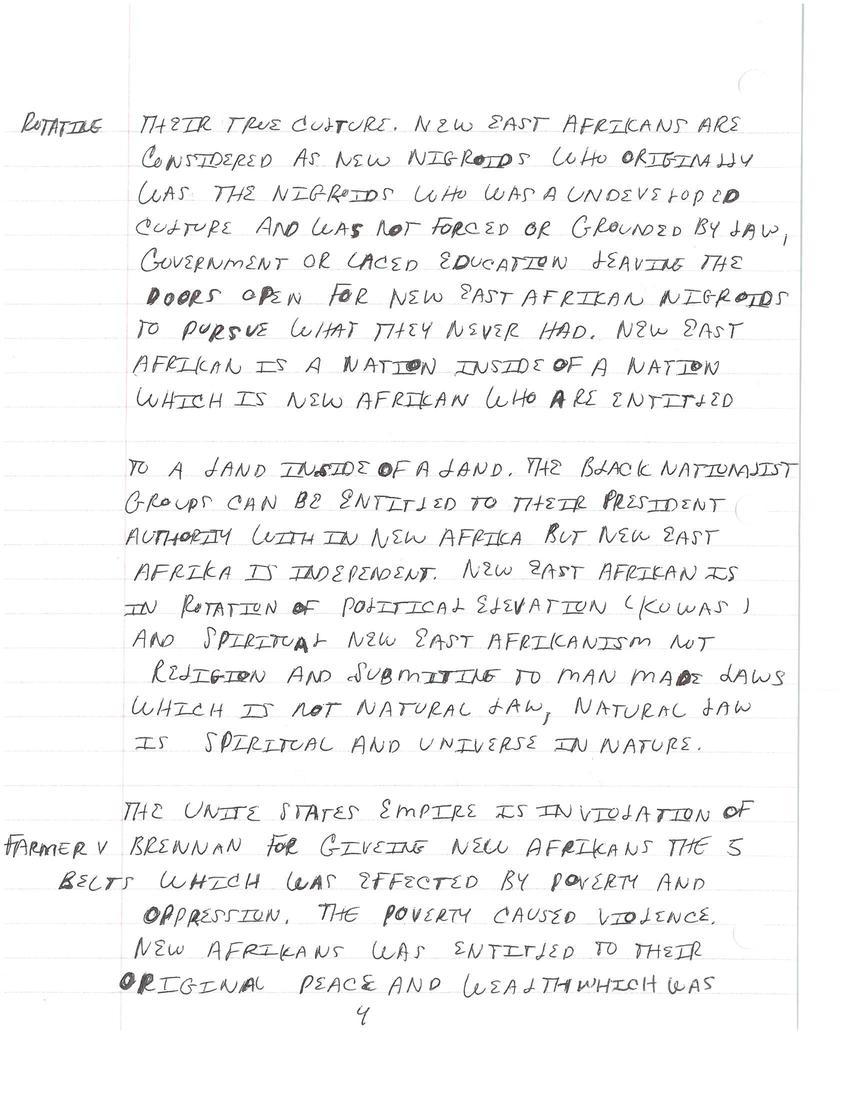 ROTATING THEIR TRUE CULTURE. NEW EAST AFRIKANS ARE
CONSIDERED AS NEW NIGROIDS WHO ORIGINALLY
WAS THE NIGROIDS WHO WAS A UNDEVELOPED
CULTURE AND WAS NOT FORCED OR GROUNDED BY LAW,
GOVERNMENT OR LACED EDUCATION LEAVING THE
DOORS OPEN FOR NEW EAST AFRIKAN NIGROIDS
TO PURSUE WHAT THEY NEVER HAD. NEW EAST
AFRIKAN IS A NATION INSIDE OF A NATION
WHICH IS NEW AFRIKAN WHO ARE ENTITLED
TO A LAND INSIDE OF A LAND. THE BLACK NATIONALIST
GROUPS CAN BE ENTITLED TO THEIR PRESIDENT
AUTHORITY WITH IN NEW AFRIKA BUT NEW EAST
AFRIKA IS INDEPENDENT. NEW EAST AFRIKAN IS
IN ROTATION OF POLITICAL ELEVATION (KUWAS)
AND SPIRITUAL NEW EAST AFRIKANISM NOT
RELIGION AND SUBMITTING TO MAN MADE LAWS
WHICH IS NOT NATURAL LAW, NATURAL LAW
IS SPIRITUAL AND UNIVERSE IN NATURE.
THE UNITE STATES EMPIRE IS IN VIOLATION OF
FARMER V BRENNAN FOR GIVEING NEW AFRIKANS THE 5
BELTS WHICH WAS EFFECTED BY POVERTY AND
OPPRESSION. THE POVERTY CAUSED VIOLENCE.
NEW AFRIKANS WAS ENTITLED TO THEIR
ORIGINAL PEACE AND WEALTH WHICH WAS
4